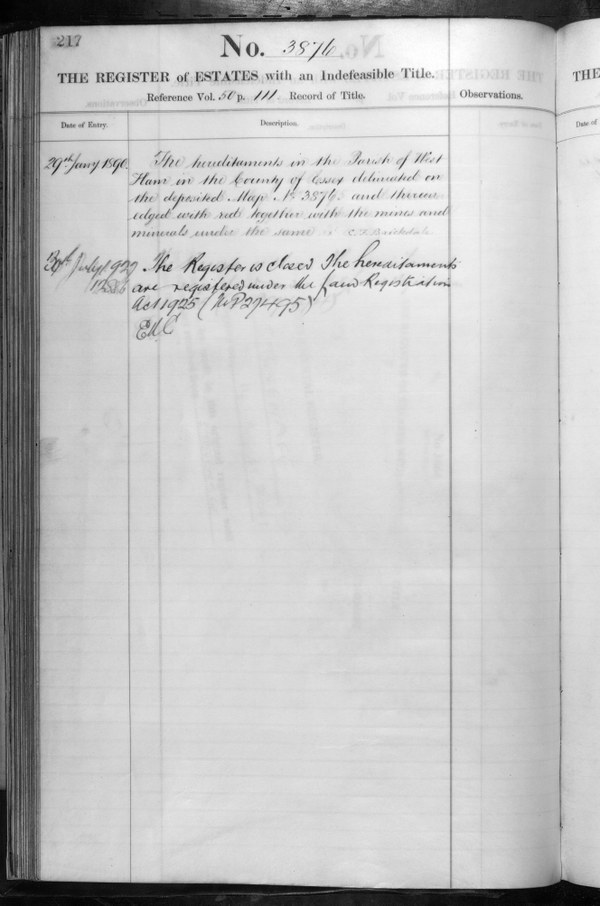 217
No. 3876.
THE REGISTER of ESTATES with an Indefeasible Title.
Reference Vol. 50 p. 111 Record of Title.
Observations.
Date of Entry.
Description.
29th Jany 1896
The hereditaments in the Parish of West
Ham in the County of Essex delineated on
the deposited Map No 3876 and thereon
edged with red together with the mines and
minerals under the same. C.F. Brickdale
30th July 1927
The Register is closed The hereditaments
are registered under the Land Registration
Act 1925 (No P27495)
THE
Date of